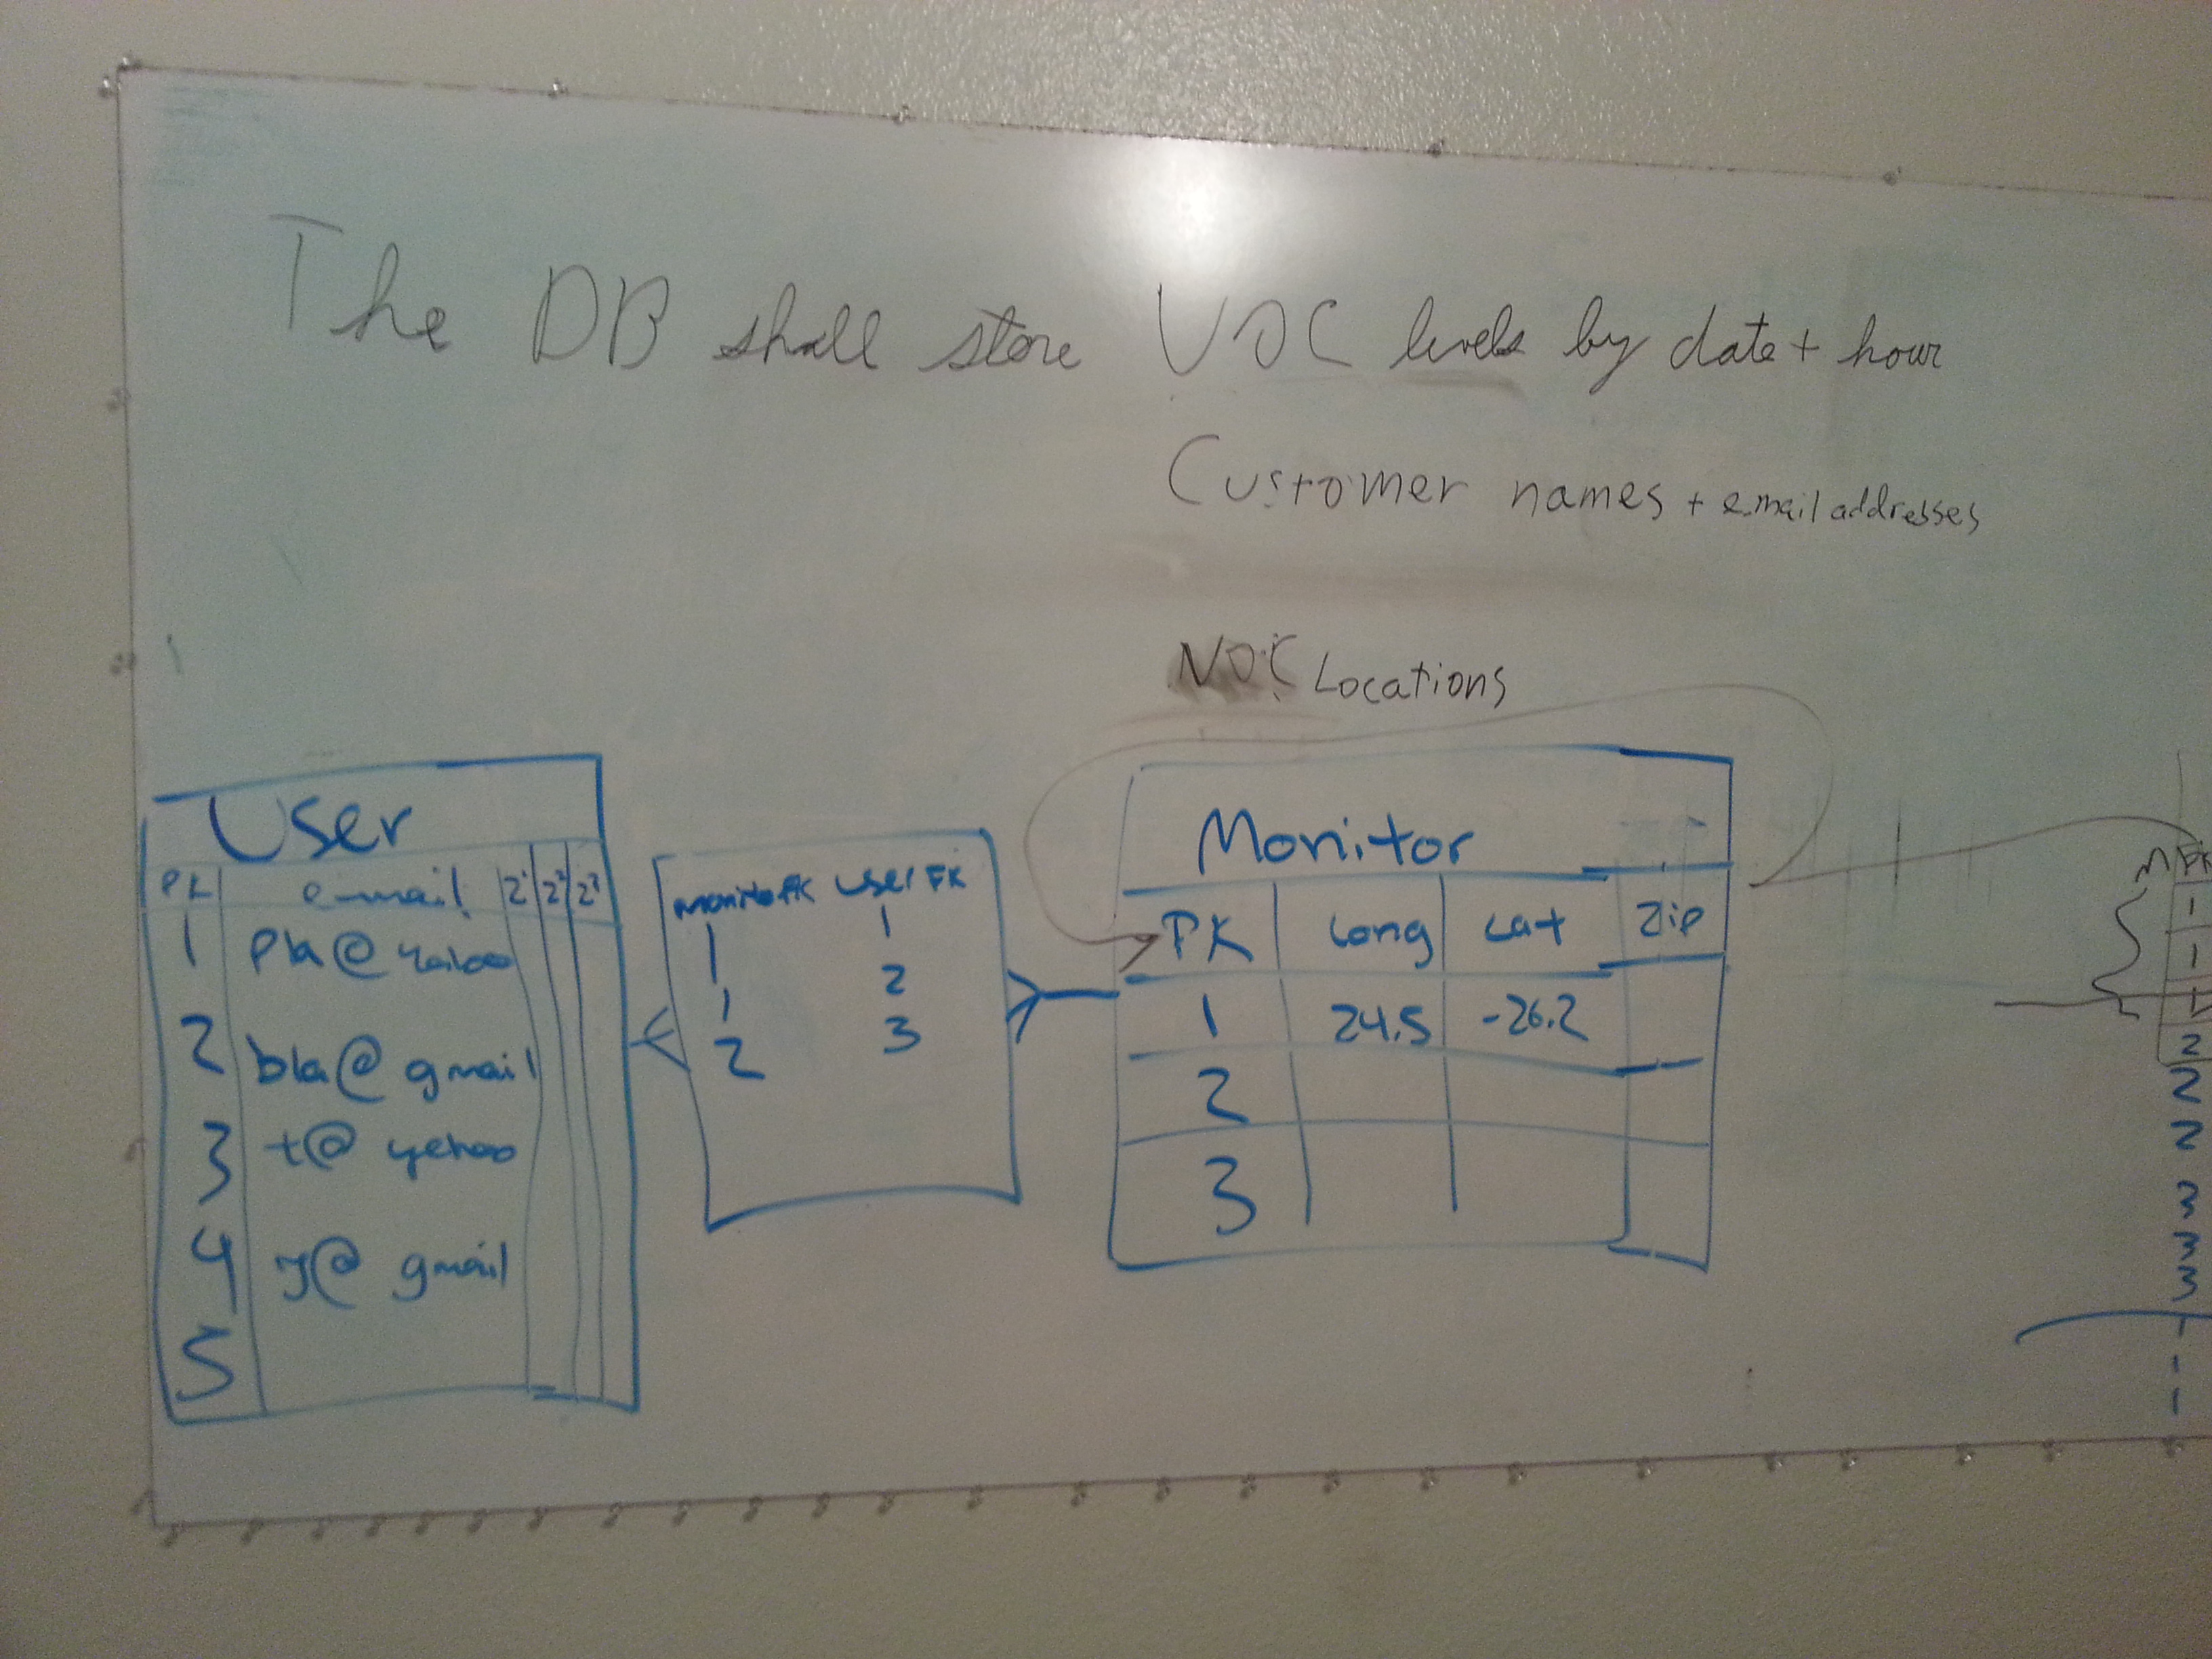 The DB shall store VOC levels by date + hour
Customer names + email addresses
VOC Locations
User
PK e-mail 2¹ 2² 2³
1
2 bla@ gmail
3 t@ yehoo
4 y@ gmail
5
monitorFK user FK
1 1
1 2
2 3
Monitor
PK Long Lat Zip
1 24.5 -26.2
2
3
M PK
1
1
1
2
2
2
3
3
3
1
1
1